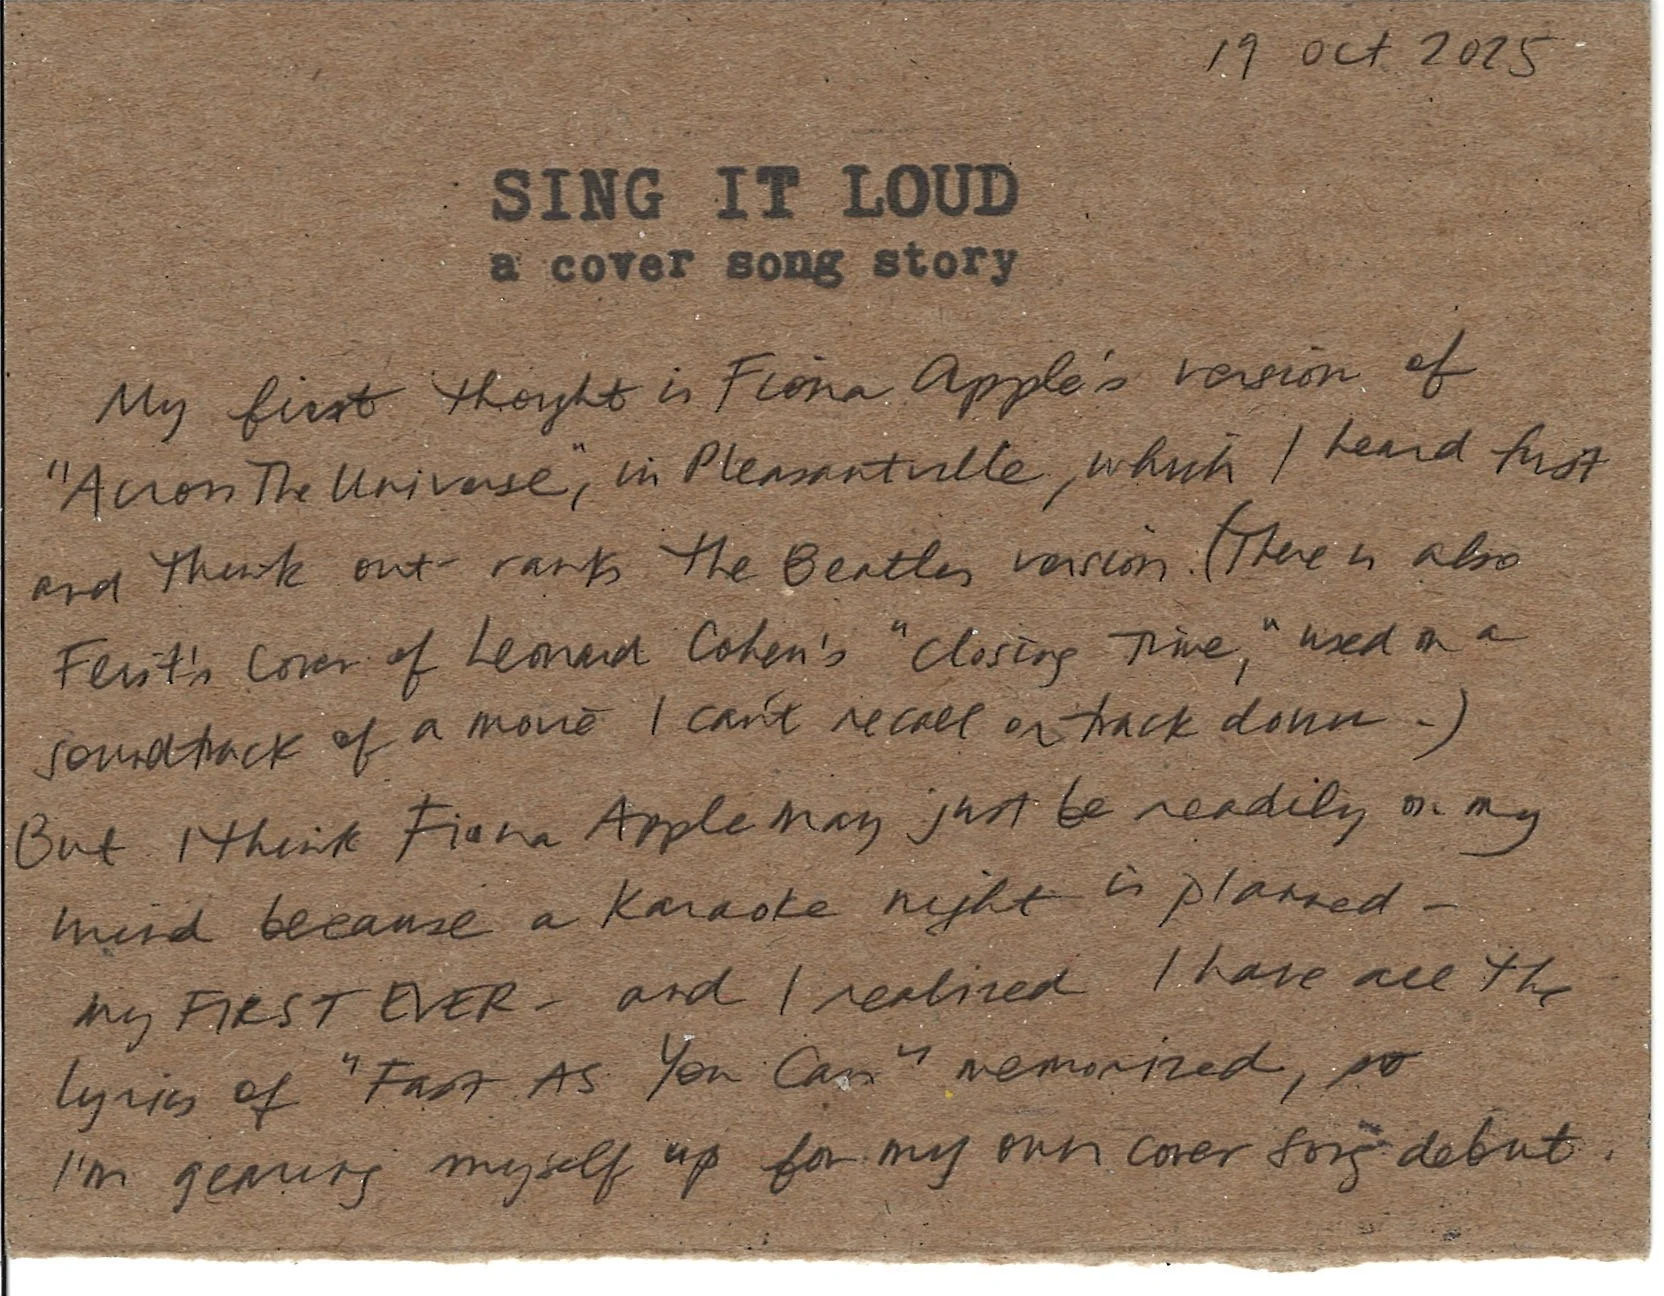 19 Oct 2025
SING IT LOUD
a cover song story
My first thought is Fiona Apple's version of
"Across The Universe", in Pleasantville, which I heard first
and think out-ranks the Beatles version. (There is also
Feist's cover of Leonard Cohen's "Closing Time," used in a
soundtrack of a movie I can't recall or track down.)
But I think Fiona Apple may just be readily on my
mind because a karaoke night is planned -
my FIRST EVER - and I realized I have all the
lyrics of "Fast As You Can" memorized, so
I'm gearing myself up for my own cover song debut.